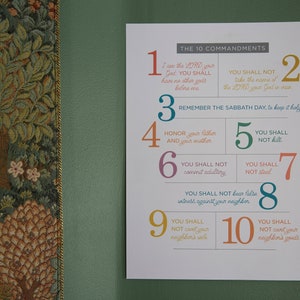 THE 10 COMMANDMENTS
1 I am the LORD your
God, YOU SHALL
have no other gods
before me.
YOU SHALL NOT 2
take the name of
the LORD your God in vain.
3 REMEMBER THE SABBATH DAY, to keep it holy.
4 HONOR your father
AND your mother.
5 YOU SHALL
NOT kill.
6 YOU SHALL NOT
commit adultery.
YOU SHALL 7
NOT steal.
YOU SHALL NOT bear false 8
witness against your neighbor.
9 YOU SHALL
NOT covet your
neighbor's wife.
10 YOU SHALL
NOT covet your
neighbor's goods.